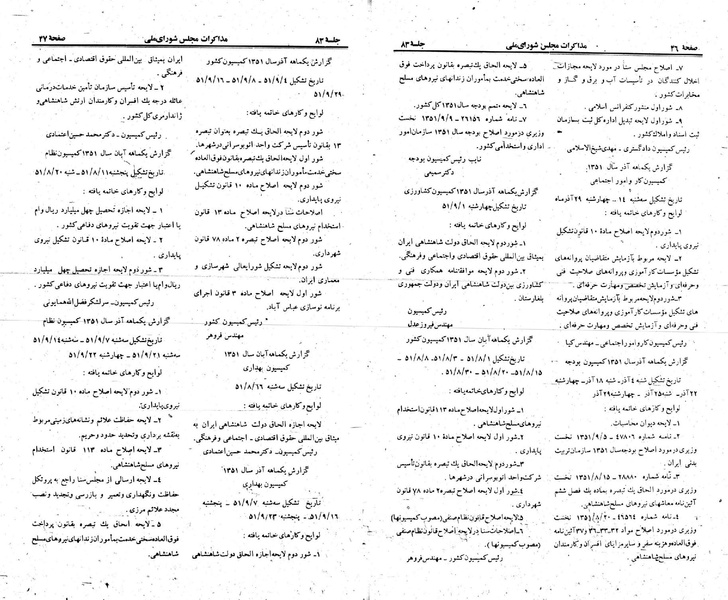 صفحهٔ ۳۶ مذاکرات مجلس شورای‌ملی جلسهٔ ۸۳
۷ـ اصلاح مجلس سنا در مورد لایحه مجازات
اخلال کنندگان در تأسیسات آب و برق و گاز و
مخابرات کشور.
۸ـ شور اول منشور کنفرانس اسلامی.
۹ـ شور اول لایحه تبدیل اداره کل ثبت بسازمان
ثبت اسناد و املاک کشور.
رئیس کمیسیون دادگستری ـ مهدی شیخ‌الاسلامی
گزارش یکماهه آذر سال ۱۳۵۱
کمیسیون کار و امور اجتماعی
تاریخ تشکیل سه‌شنبه ۱۴ـ چهارشنبه ۲۹ آذرماه
لوایح و کارهای خاتمه یافته:
۱ـ شور دوم لایحه اصلاح مادهٔ ۱۰ قانون تشکیل
نیروی پایداری.
۲ـ لایحه مربوط بآزمایش متقاضیان پروانه‌های
تشکیل مؤسسات کارآموزی و پروانه‌های صلاحیت فنی
و حرفه‌ای و آزمایش تخصص و مهارت حرفه‌ای.
۳ـ شور دوم لایحه مربوط بآزمایش متقاضیان پروانه
های تشکیل مؤسسات کارآموزی و پروانه صلاحیت
فنی و حرفه‌ای و آزمایش تخصص و مهارت حرفه‌ای.
رئیس کمیسیون کار و امور اجتماعی ـ مهندس کیا
گزارش یکماهه آذر سال ۱۳۵۱ کمیسیون بودجه
تاریخ تشکیل شنبه ۴ آذر ـ شنبه ۱۸ آذر ـ چهارشنبه
۲۲ آذر ـ شنبه ۲۵ آذر ـ چهارشنبه ۲۹ آذر
لوایح و کارهای خاتمه یافته:
۱ـ لایحه دیوان محاسبات.
۲ـ نامه شماره ۴۷۸۰۶ ـ ۱۳۵۱/۹/۵ نخست
وزیری در مورد اصلاح بودجه سال ۱۳۵۱ سازمان تربیت
بدنی ایران.
۳ـ نامه شماره ۲۸۸۸۰ ـ ۱۳۵۱/۸/۱۵ نخست
وزیری در مورد الحاق یک تبصره بماده یک فصل ششم
آئین‌نامه معاشهای نیروهای مسلح شاهنشاهی.
۴ـ نامه شماره ۴۶۵۱۴ ـ ۱۳۵۱/۸/۲۰ نخست
وزیری در مورد اصلاح مواد ۳۲ـ۳۳ـ۳۶ و ۳۷ آئین‌نامه
فوق‌العاده و هزینه سفر و سایر مزایای افسران و کارمندان
نیروهای مسلح شاهنشاهی.
۵ـ لایحه الحاق یک تبصره بقانون پرداخت فوق
العاده سختی خدمت بمأموران زندانهای نیروهای مسلح
شاهنشاهی.
۶ـ لایحه متمم بودجه سال ۱۳۵۱ کل کشور.
۷ـ نامه شماره ۲۶۱۵۶ ـ ۱۳۵۱/۹/۹ نخست
وزیری در مورد اصلاح بودجه سال ۱۳۵۱ سازمان امور
اداری و استخدامی کشور.
نایب رئیس کمیسیون بودجه
دکتر سمیعی
گزارش یکماهه آذر سال ۱۳۵۱ کمیسیون کشاورزی
تاریخ تشکیل چهارشنبه ۵۱/۹/۱
لوایح و کارهای خاتمه یافته:
شور دوم لایحه الحاق دولت شاهنشاهی ایران
بمیثاق بین‌المللی حقوق اقتصادی و اجتماعی و فرهنگی.
۲ـ شور دوم لایحه موافقتنامه همکاری فنی و
کشاورزی بین دولت شاهنشاهی ایران و دولت جمهوری
بلغارستان.
رئیس کمیسیون
مهندس فیروز عدل
گزارش یکماهه آبان سال ۱۳۵۱ کمیسیون کشور
تاریخ تشکیل ۵۱/۸/۱ ـ ۵۱/۸/۳ ـ ۵۱/۸/۸ ـ
۵۱/۸/۱۵ ـ ۵۱/۸/۲۰ ـ ۵۱/۸/۳۰
لوایح و کارهای خاتمه یافته:
۱ـ شور اول لایحه اصلاح ماده ۱۱۳ قانون استخدام
نیروهای مسلح شاهنشاهی.
۲ـ شور اول لایحه اصلاح مادهٔ ۱۰ قانون نیروی
پایداری.
۳ـ شور دوم لایحه الحاق یک تبصره بقانون تأسیس
شرکت واحد اتوبوسرانی در شهرها.
۴ـ شور اول لایحه اصلاح تبصره ۲ ماده ۷۸ قانون
شهرداری.
۵ـ لایحه اصلاح قانون نظام صنفی (مصوب کمیسیونها)
۶ـ اصلاحات سنا در لایحه اصلاح قانون نظام صنفی
(مصوب کمیسیونها).
رئیس کمیسیون کشور ـ مهندس فروهر
جلسهٔ ۸۳ مذاکرات مجلس شورای‌ملی صفحهٔ ۳۷
گزارش یکماهه آذر سال ۱۳۵۱ کمیسیون کشور
تاریخ تشکیل ۵۱/۹/۴ ـ ۵۱/۹/۸ ـ ۵۱/۹/۱۶ ـ
۵۱/۹/۲۹
لوایح و کارهای خاتمه یافته:
شور دوم لایحه الحاق یک تبصره بعنوان تبصره
۱۳ بقانون تأسیس شرکت واحد اتوبوسرانی در شهرها.
شور اول لایحه الحاق یک تبصره بقانون فوق‌العاده
سختی خدمت مأموران زندانهای نیروهای مسلح شاهنشاهی.
شور دوم لایحه اصلاح ماده ۱۰ قانون تشکیل نیروی
پایداری.
اصلاحات سنا در لایحه اصلاح ماده ۱۱۳ قانون
استخدام نیروهای مسلح شاهنشاهی.
شور دوم لایحه اصلاح تبصره ۲ ماده ۷۸ قانون
شهرداری.
شور دوم لایحه تشکیل شورایعالی شهرسازی و
معماری ایران.
شور اول لایحه اصلاح ماده ۳ قانون اجرای
برنامه نوسازی عباس آباد.
رئیس کمیسیون کشور
مهندس فروهر
گزارش یکماهه آبان سال ۱۳۵۱
کمیسیون بهداری
تاریخ تشکیل سه‌شنبه ۵۱/۸/۱۶
لوایح و کارهای خاتمه یافته:
لایحه اجازه الحاق دولت شاهنشاهی ایران به
میثاق بین‌المللی حقوق اقتصادی ـ اجتماعی و فرهنگی.
رئیس کمیسیون ـ دکتر محمد حسین اعتمادی
گزارش یکماهه آذر سال ۱۳۵۱
کمیسیون بهداری
تاریخ تشکیل سه‌شنبه ۵۱/۹/۷ ـ پنجشنبه
۵۱/۹/۱۶ ـ پنجشنبه ۵۱/۹/۲۳
لوایح و کارهای خاتمه یافته:
۱ـ شور دوم لایحه اجازه الحاق دولت شاهنشاهی
ایران بمیثاق بین‌المللی حقوق اقتصادی ـ اجتماعی و
فرهنگی.
۲ـ لایحه تأسیس سازمان تأمین خدمات درمانی
عائله درجه یک افسران و کارمندان ارتش شاهنشاهی و
ژاندارمری کل کشور.
رئیس کمیسیون ـ دکتر محمد حسین اعتمادی
گزارش یکماهه آبان سال ۱۳۵۱ کمیسیون نظام
تاریخ تشکیل پنجشنبه ۵۱/۸/۱۱ ـ شنبه ۵۱/۸/۲۰
لوایح و کارهای خاتمه یافته:
۱ـ لایحه اجازه تحصیل چهل میلیارد ریال وام
یا اعتبار جهت تقویت نیروهای دفاعی کشور.
۲ـ لایحه اصلاح مادهٔ ۱۰ قانون تشکیل نیروی
پایداری.
۳ـ شور دوم لایحه اجازه تحصیل چهل میلیارد
ریال وام یا اعتبار جهت تقویت نیروهای دفاعی کشور.
رئیس کمیسیون ـ سرلشکر فضل‌الله همایونی
گزارش یکماهه آذر سال ۱۳۵۱ کمیسیون نظام
تاریخ تشکیل سه‌شنبه ۵۱/۹/۷ ـ سه‌شنبه ۵۱/۹/۱۴
سه‌شنبه ۵۱/۹/۲۱ ـ چهارشنبه ۵۱/۹/۲۲
لوایح و کارهای خاتمه یافته:
۱ـ شور دوم لایحه اصلاح ماده ۱۰ قانون تشکیل
نیروی پایداری.
۲ـ لایحه حفاظت علائم و نشانه‌های زمینی مربوط
به نقشه برداری و تحدید حدود و حریم.
۳ـ لایحه اصلاح ماده ۱۱۳ قانون استخدام
نیروهای مسلح شاهنشاهی.
۴ـ لایحه ارسالی از مجلس سنا راجع به پروتکل
حفاظت و نگهداری و تعمیر و بازرسی و تجدید و نصب
مجدد علائم مرزی.
۵ـ لایحه الحاق یک تبصره بقانون پرداخت
فوق‌العاده سختی خدمت بمأموران زندانهای نیروهای مسلح
شاهنشاهی.